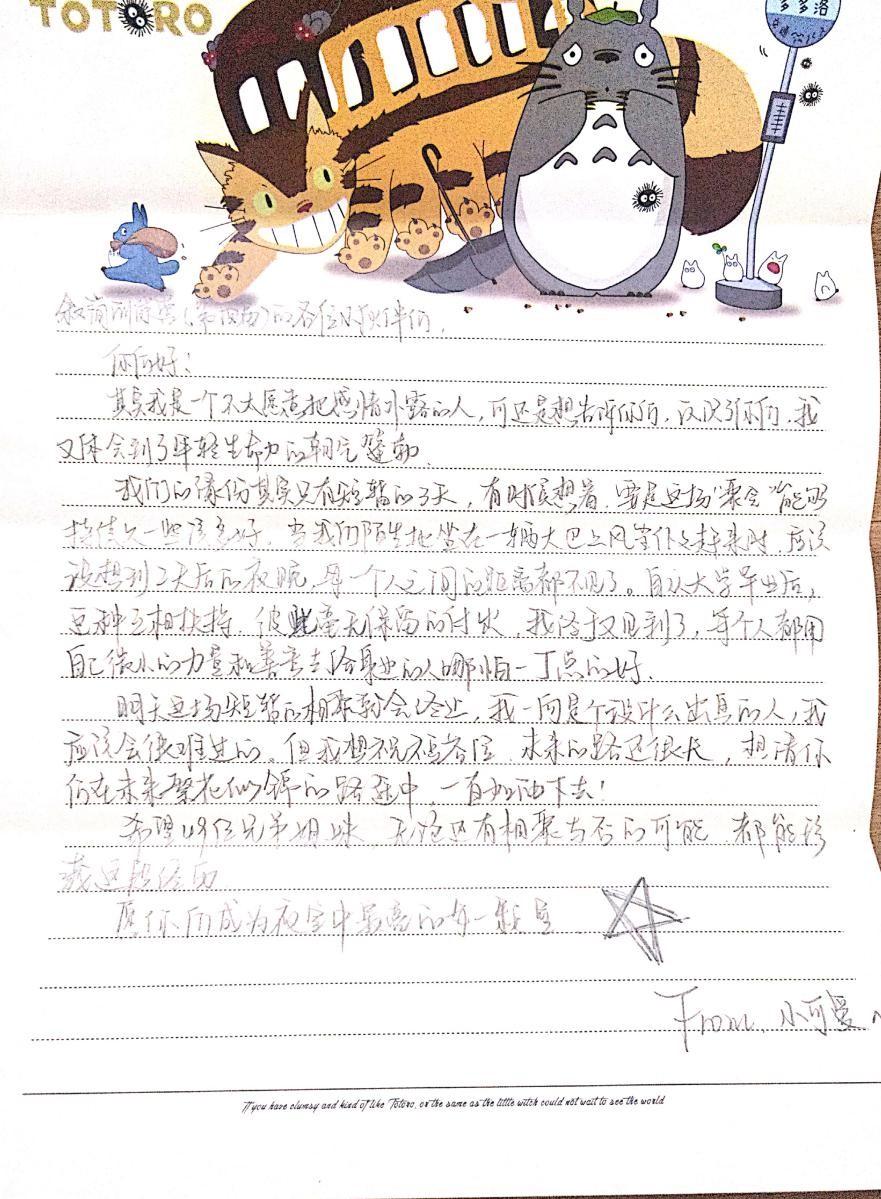 TOTORO
的各位小伙伴们,
你们好:
其实我是一个不太愿意把感情外露的人,可还是想告诉你们,认识了你们,我
又体会到了年轻生命力的朝气蓬勃.
我们的缘份其实只有短暂的3天,有时候想着,要是这场"聚会"能够
持续久一些该多好.当我们陌生地坐在一辆大巴上风尘仆仆赶来时,应该
没想到2天后的夜晚,每一个人之间的距离都不见了。自从大学毕业后,
这种互相扶持,彼此毫无保留的付出,我终于又见到了,每个人都用
自己微小的力量和善意去给身边的人哪怕一丁点的好.
明天这场短暂的相聚就会终止,我一向是个没什么出息的人,我
应该会很难过的。但我想祝福各位,未来的路还很长,想请你
们在未来繁花似锦的路途中,一直如此下去!
希望49位兄弟姐妹,无论还有相聚与否的可能,都能珍
藏这段经历
愿你们成为夜空中最亮的每一颗星
From. 小可爱~
If you have clumsy and kind of like Totoro, or the same as the little witch could not wait to see the world